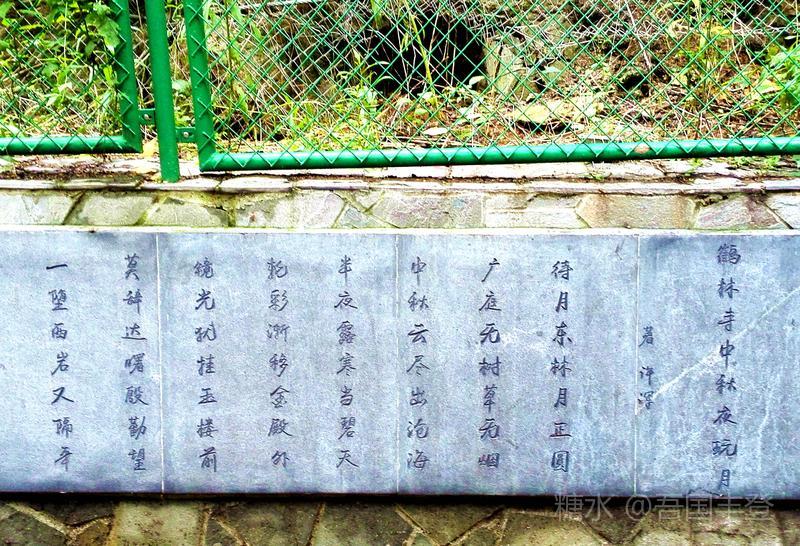 鹤林寺中秋夜玩月
著 许浑
待月东林月正圆
广庭无树草无烟
中秋云尽出沧海
半夜露寒当碧天
轮彩渐移金殿外
镜光犹挂玉楼前
莫辞达曙殷勤望
一堕西岩又隔年
糖水 @吾国丰登